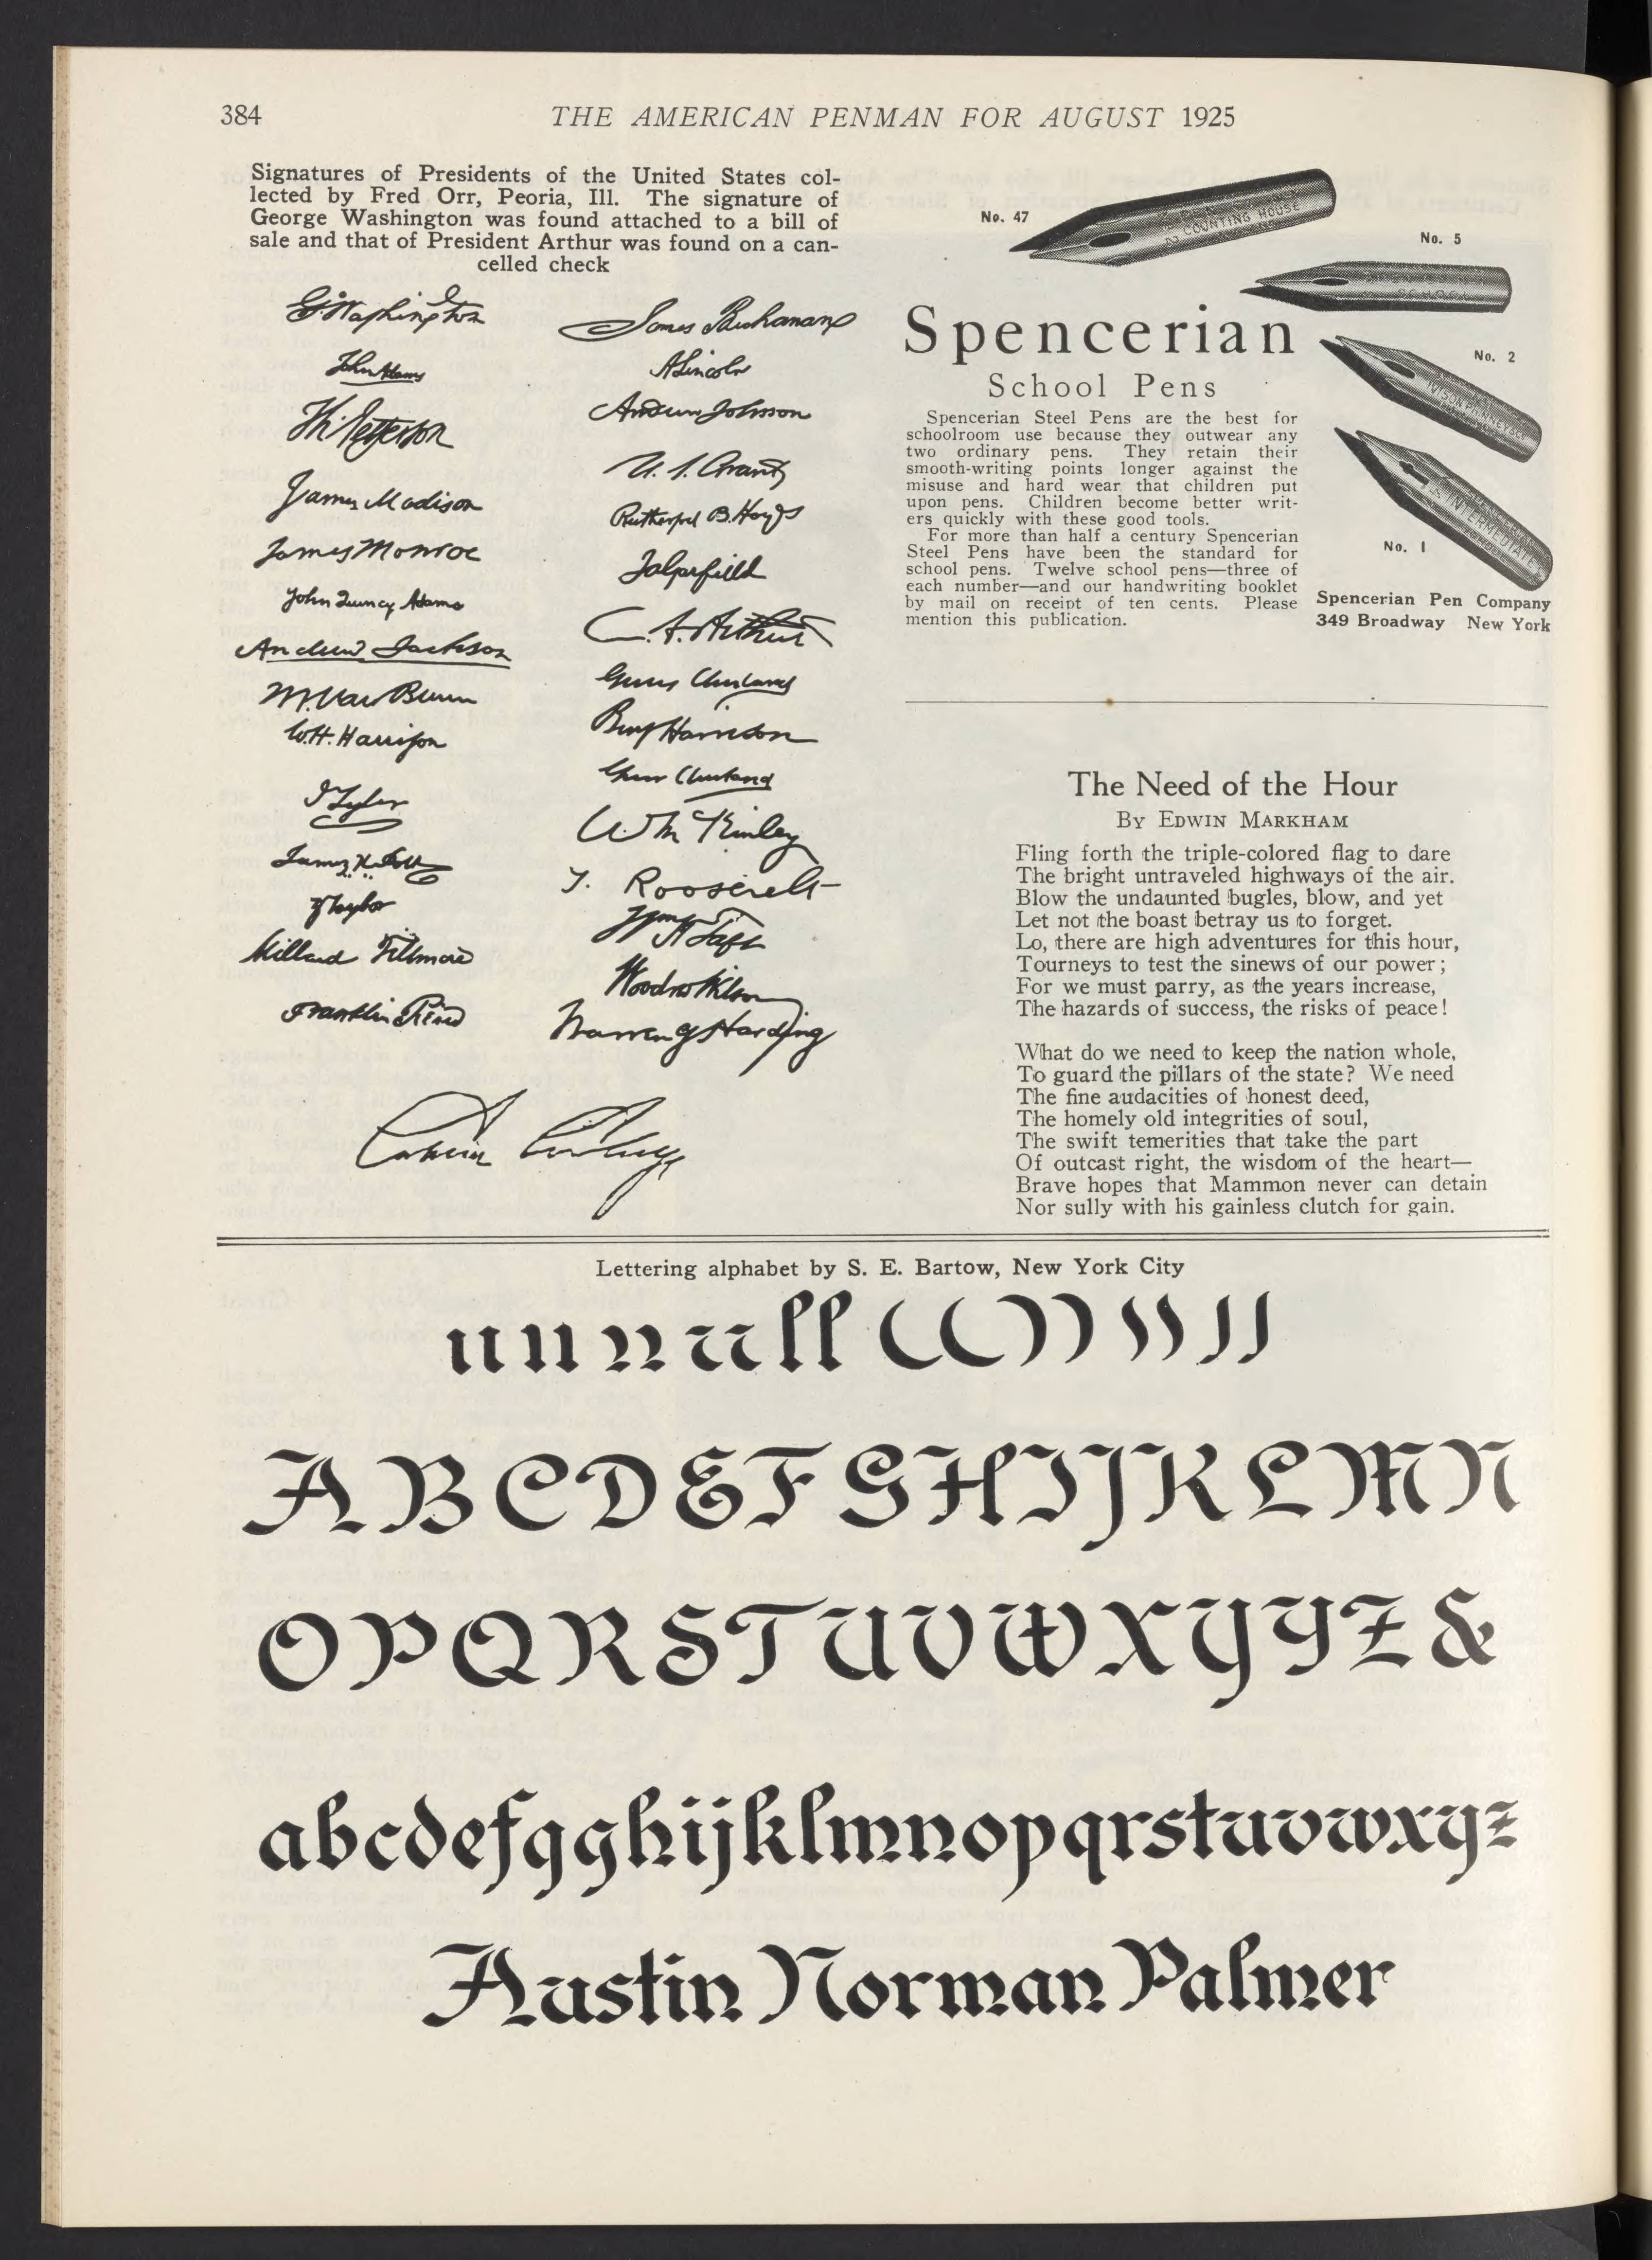 384
THE AMERICAN PENMAN FOR AUGUST 1925
Signatures of Presidents of the United States col-
lected by Fred Orr, Peoria, Ill. The signature of
George Washington was found attached to a bill of
sale and that of President Arthur was found on a can-
celled check
G:Washington
John Adams
Th: Jefferson
James Madison
James Monroe
John Quincy Adams
Andrew Jackson
M. Van Buren
W.H. Harrison
J Tyler
James K. Polk
Z Taylor
Millard Fillmore
Franklin Pierce
James Buchanan
A Lincoln
Andrew Johnson
U. S. Grant
Rutherford B. Hayes
J A Garfield
C. A. Arthur
Grover Cleveland
Benj Harrison
Grover Cleveland
Wm McKinley
T. Roosevelt
Wm H Taft
Woodrow Wilson
Warren G Harding
Calvin Coolidge
No. 47
COUNTING HOUSE
No. 5
SCHOOL
No. 2
No. 1
INTERMEDIATE
Spencerian
School Pens
Spencerian Steel Pens are the best for
schoolroom use because they outwear any
two ordinary pens. They retain their
smooth-writing points longer against the
misuse and hard wear that children put
upon pens. Children become better writ-
ers quickly with these good tools.
For more than half a century Spencerian
Steel Pens have been the standard for
school pens. Twelve school pens—three of
each number—and our handwriting booklet
by mail on receipt of ten cents. Please
mention this publication.
Spencerian Pen Company
349 Broadway New York
The Need of the Hour
By Edwin Markham
Fling forth the triple-colored flag to dare
The bright untraveled highways of the air.
Blow the undaunted bugles, blow, and yet
Let not the boast betray us to forget.
Lo, there are high adventures for this hour,
Tourneys to test the sinews of our power;
For we must parry, as the years increase,
The hazards of success, the risks of peace!
What do we need to keep the nation whole,
To guard the pillars of the state? We need
The fine audacities of honest deed,
The homely old integrities of soul,
The swift temerities that take the part
Of outcast right, the wisdom of the heart—
Brave hopes that Mammon never can detain
Nor sully with his gainless clutch for gain.
Lettering alphabet by S. E. Bartow, New York City
A B C D E F G H I J K L M N
O P Q R S T U V W X Y Y Z &
a b c d e f g g h i j k l m n o p q r s t u v w x y z
Austin Norman Palmer